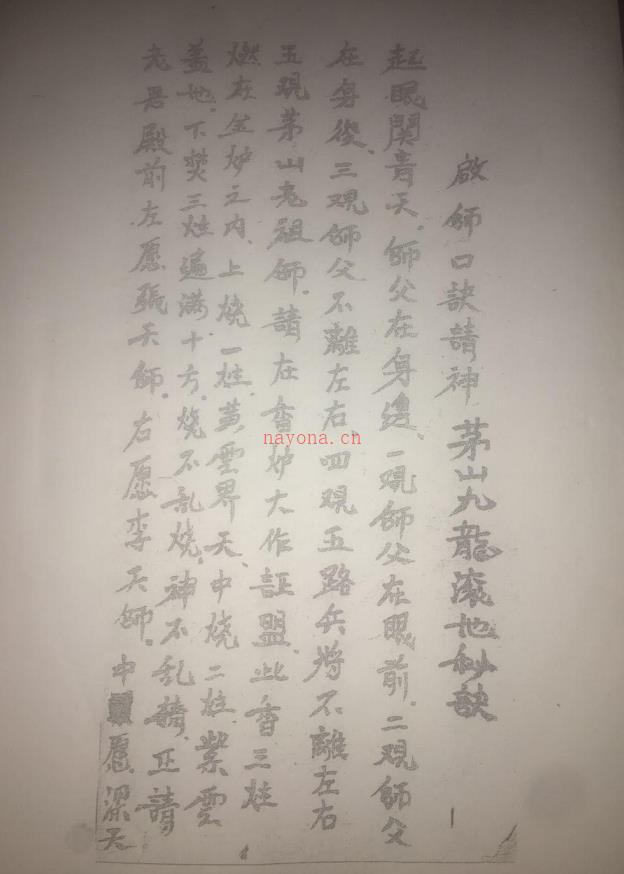 啟師口訣請神 茅山九龍滚地秘訣
起眼関青天.師父在身边.一观師父在眼前.二观師父
在身後.三观師父不離左右.四观五路兵將不離左右
五观茅山老祖師.請在香炉大作証盟.此香三炷
燃在金炉之内.上燒一炷.黄雲界天.中燒二炷.紫雲
蓋地.下焚三炷遍满十方.燒不乱燒.神不乱請.正請
老君殿前左愿張天師.右愿李天師.中愿深天
nayona.cn